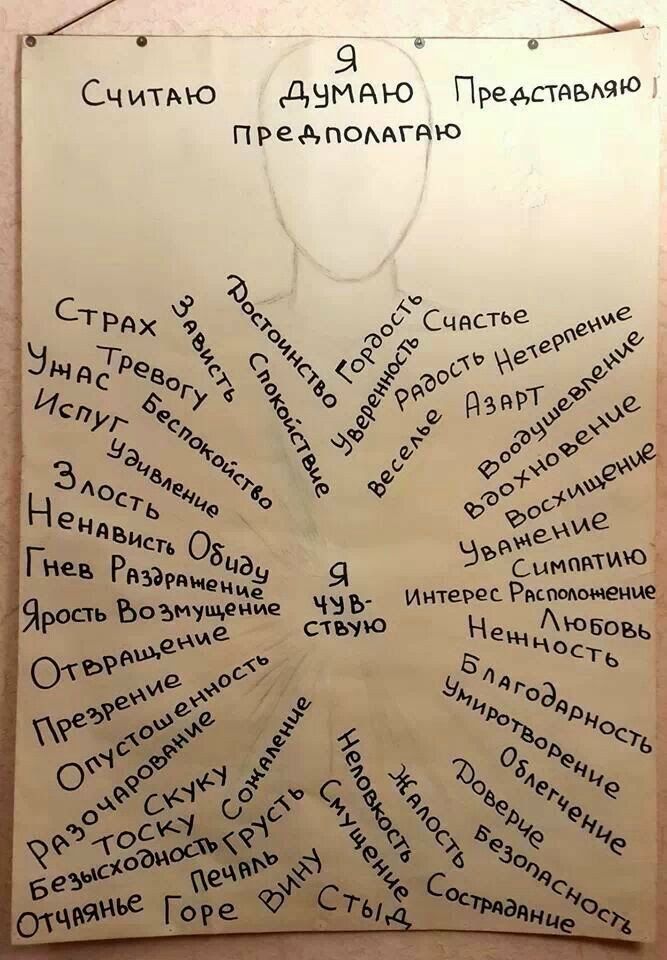 Я
Считаю думаю Представляю
предполагаю
Страх
Зависть
Достоинство
Гордость
Счастье
Нетерпение
Ужас
Тревогу
Спокойствие
Уверенность
Радость
Азарт
Воодушевление
Испуг
Беспокойство
Веселье
Вдохновение
Удивление
Восхищение
Злость
Уважение
Ненависть
Обиду
Симпатию
Гнев Раздражение
Я
Интерес Расположение
Ярость Возмущение
чув-
ствую
Любовь
Нежность
Отвращение
Благодарность
Презрение
Умиротворение
Опустошенность
Облегчение
Разочарование
Сожаление
Неловкость
Жалость
Доверие
Скуку
Безопасность
Тоску
Грусть
Смущение
Безысходность
Печаль
Вину
Сострадание
Отчаянье
Горе
Стыд